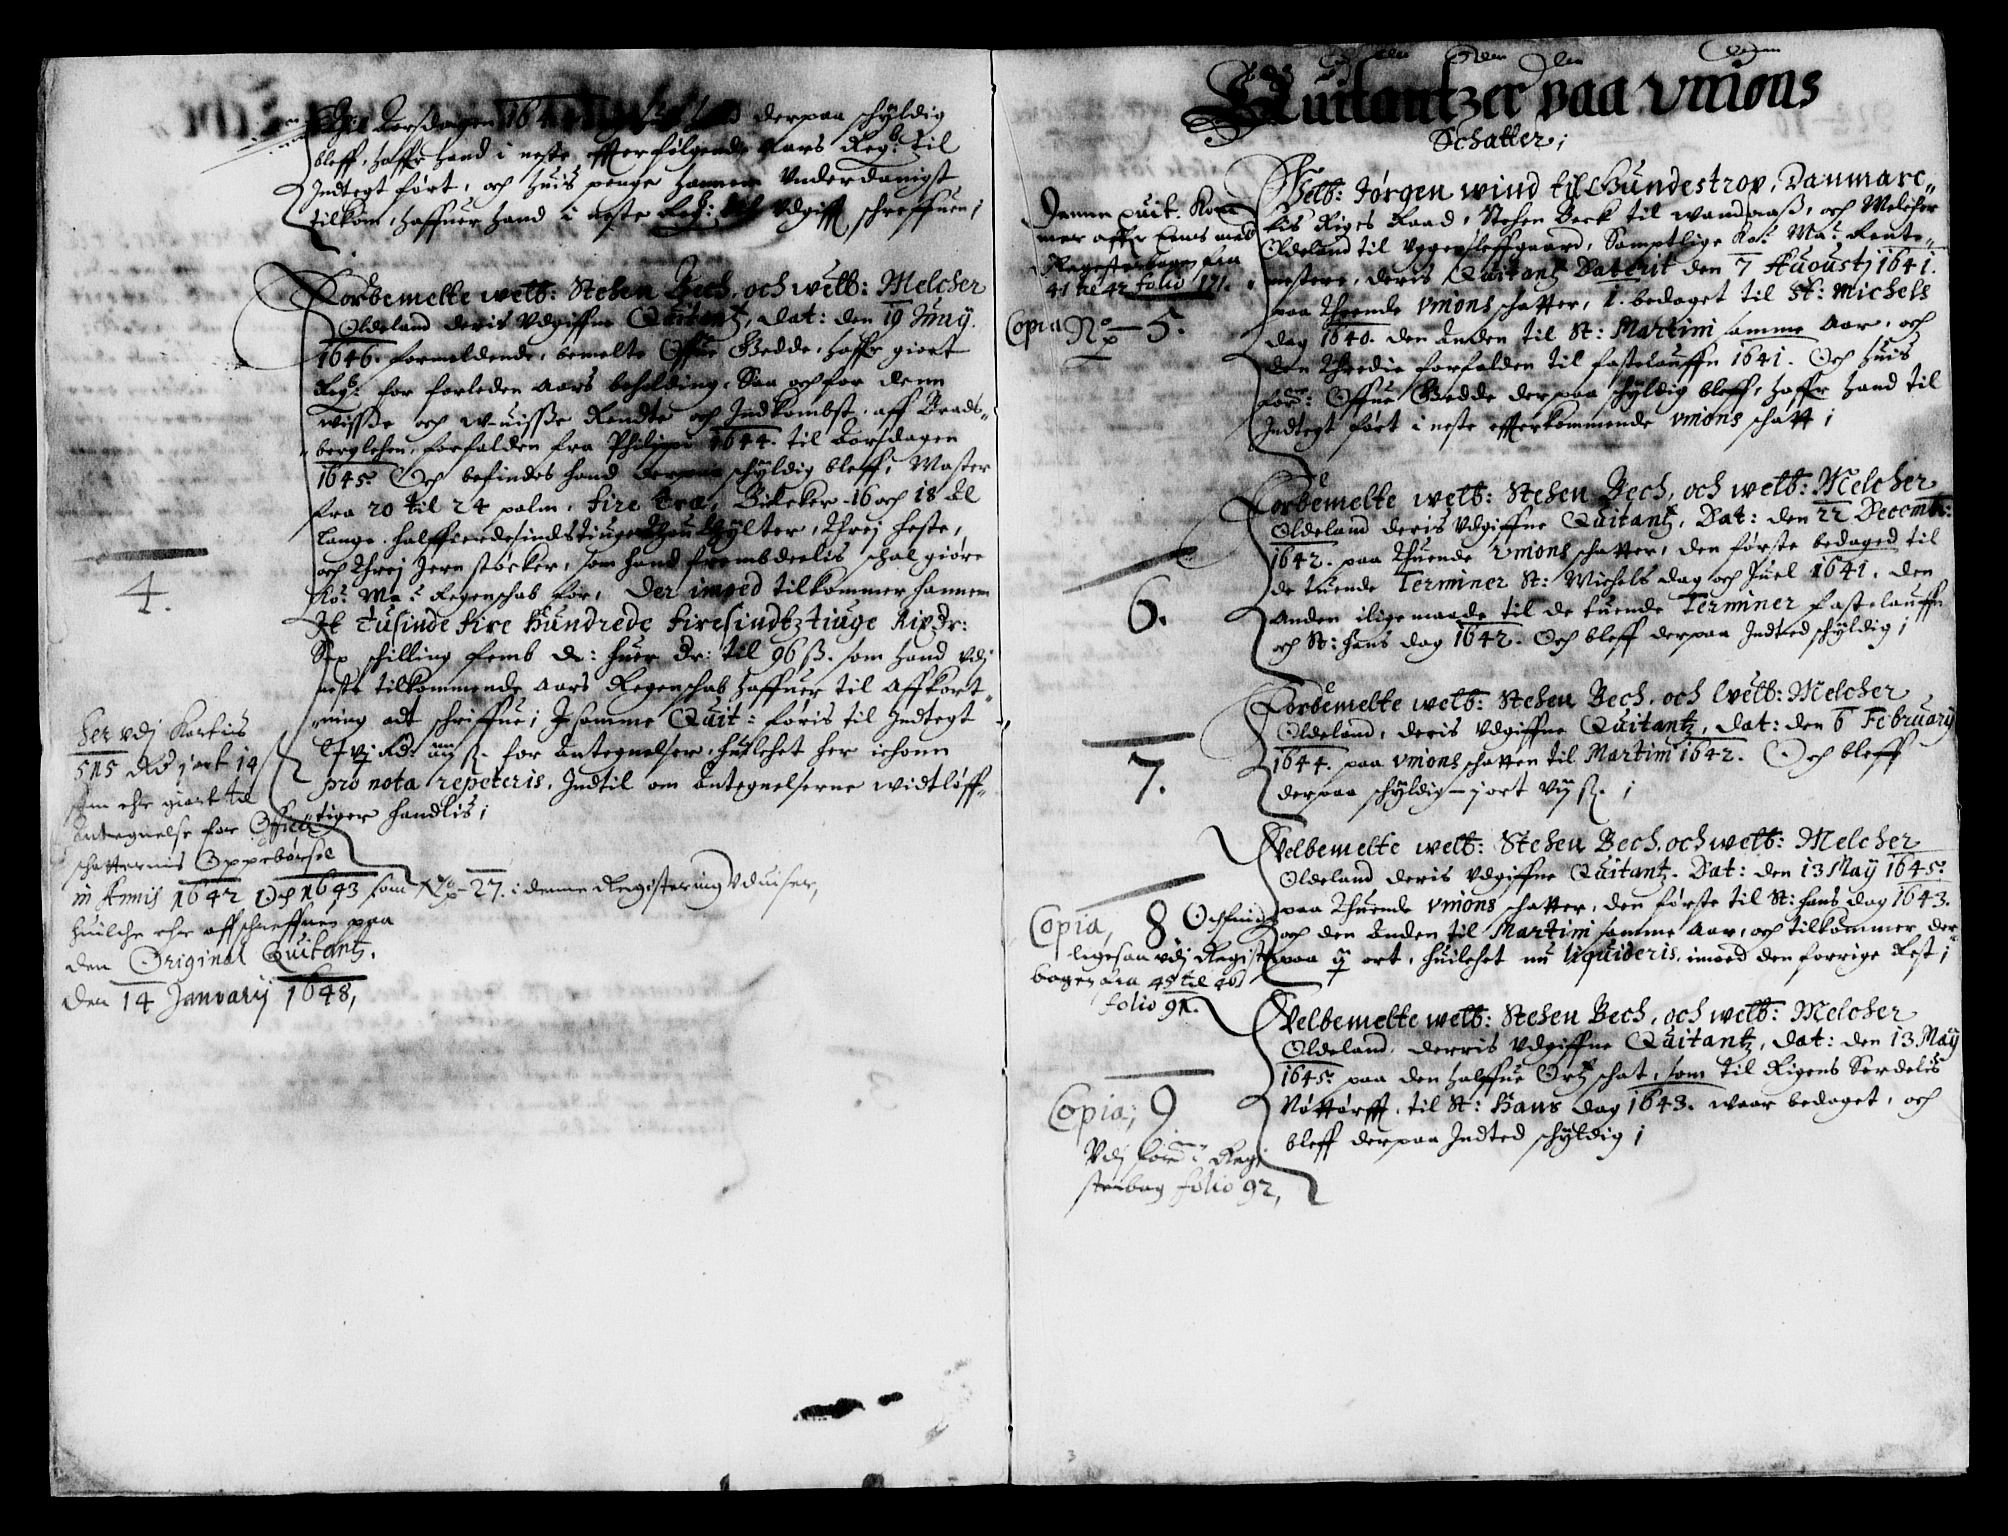 Korsdagen 164 derpaa schyldig
bleff, haffr hand i neste effterfølgende Aars Regb: til
Indtegt ført, och huis penge hannem Underdanigst
tilkom, haffuer hand i neste Regb: till Udgifft schreffuen;
Forbemelte welb: Stehen Bech, och welb: Melcher
Oldeland deris Udgiffne Quitantz, Dat: den 19 Juny.
1646. formeldende, bemelte Offue Gedde, haffr giort
Regb: for forleden Aars beholding, Saa och for denn
wisse och wuisse Rendte och Indkombst, aff Brads-
berglehen, forfalden fra Philippi 1644. til Korsdagen
1645. Och befindes hand derpaa schyldig bleff, Master
fra 20 til 24 palm, fire træ, Bielcker 16 och 18 al
lange, halffierdesindstiuge Hylter, threj heste,
och threj Jern støcker, som hand frembdeelis schal giøre
Ko: Ma: Regenschab for, Der imod tilkommer hannem
It Tusinde fire hundrede firesindtztiuge Rixdr:
Sex schilling femb d: huer dr: til 96 ß. som hand udj
neste tilkommende Aars Regenschab haffuer til affkort-
ning adt schriffue; Jsamme Quit: føris til Indtegt
for Antegnelser, huilchet her ickonn
pro nota repeteris, Indtil om antegnelserne widtløff-
tiger handlis;
4.
her udj Kortis
515 Rdr j ort 14
som ehr giort til
Antegnelse for Offue
schatternis Oppebørsel
in Annis 1642 Och 1643 som No-27. i denne Registering Udviser,
huilche ehr affschreffuen paa
den Original Quitantz.
Den 14 Januarij 1648,
Quitantzer paa Unions
Schatter;
Welb: Jørgen Wind til Gundestrop, Danmarc-
kis Riges Raad, Stehen Beck til Wandaaß, och Melcher
Oldeland til Uggersleffgaard, Samptlige Ko: Ma: Rente-
mestere, deris Quitantz Daterit den 7 Augustj 1641.
paa Thrende Unions schatter, 1. bedaget til St: Michels
dag 1640. den Anden til St: Martini samme Aar, och
den Thredie forfalden til fastelauffn 1641. Och huis
ford: Offue Gedde derpaa schyldig bleff, haffr hand til
Indtegt ført i neste effterkommende Unions schatt;
Denne quit. Kom-
mer offr Eens med
Registerbogen fra
41 til 42 folio 171.
Copia No-5.
Forbemelte welb: Stehen Bech, och welb: Melcher
Oldeland deris Udgiffne Quitantz, Dat: den 22 Decemb:
1642. paa Thuende Unions schatter, den første bedaged til
de tuende Terminer St: Michels dag och Juel 1641. den
Anden iligemaade til de tuende Terminer fastelauffn
och St: hans dag 1642. Och bleff derpaa Indted schyldig;
6.
Forbemelte welb: Stehen Bech, och Welb: Melcher
Oldeland, deris Udgiffne Quitantz, Dat: den 6 February
1644. paa Unions schatten til Martini 1642. Och bleff
derpaa schyldig - j ort vij ß. ;
7.
Welbemelte welb: Stehen Bech, och welb: Melcher
Oldeland deris Udgiffne Quitantz. Dat: den 13 May 1645.
paa Thuende Unions schatter, den første til St: hans dag 1643.
och den Anden til Martini samme Aar, och tilkommer der-
paa ij ort, huilchet nu liquideris, imod den forrige Rest;
Copia, 8 Och findis
ligesaa udj Register
bogen fra 45 til 46
folio 91.
Welbemelte welb: Stehen Bech, och welb: Melcher
Oldeland, derris Udgiffne Quitantz, Dat: den 13 May
1645. paa den halffue Ortz schat, som til Rigens Serdelis
Nøttørfft, til St: Hans dag 1643. waar bedaget, och
bleff derpaa Indted schyldig;
Copia; 9.
Udj ford: Regi
sterbog folio 92,
3